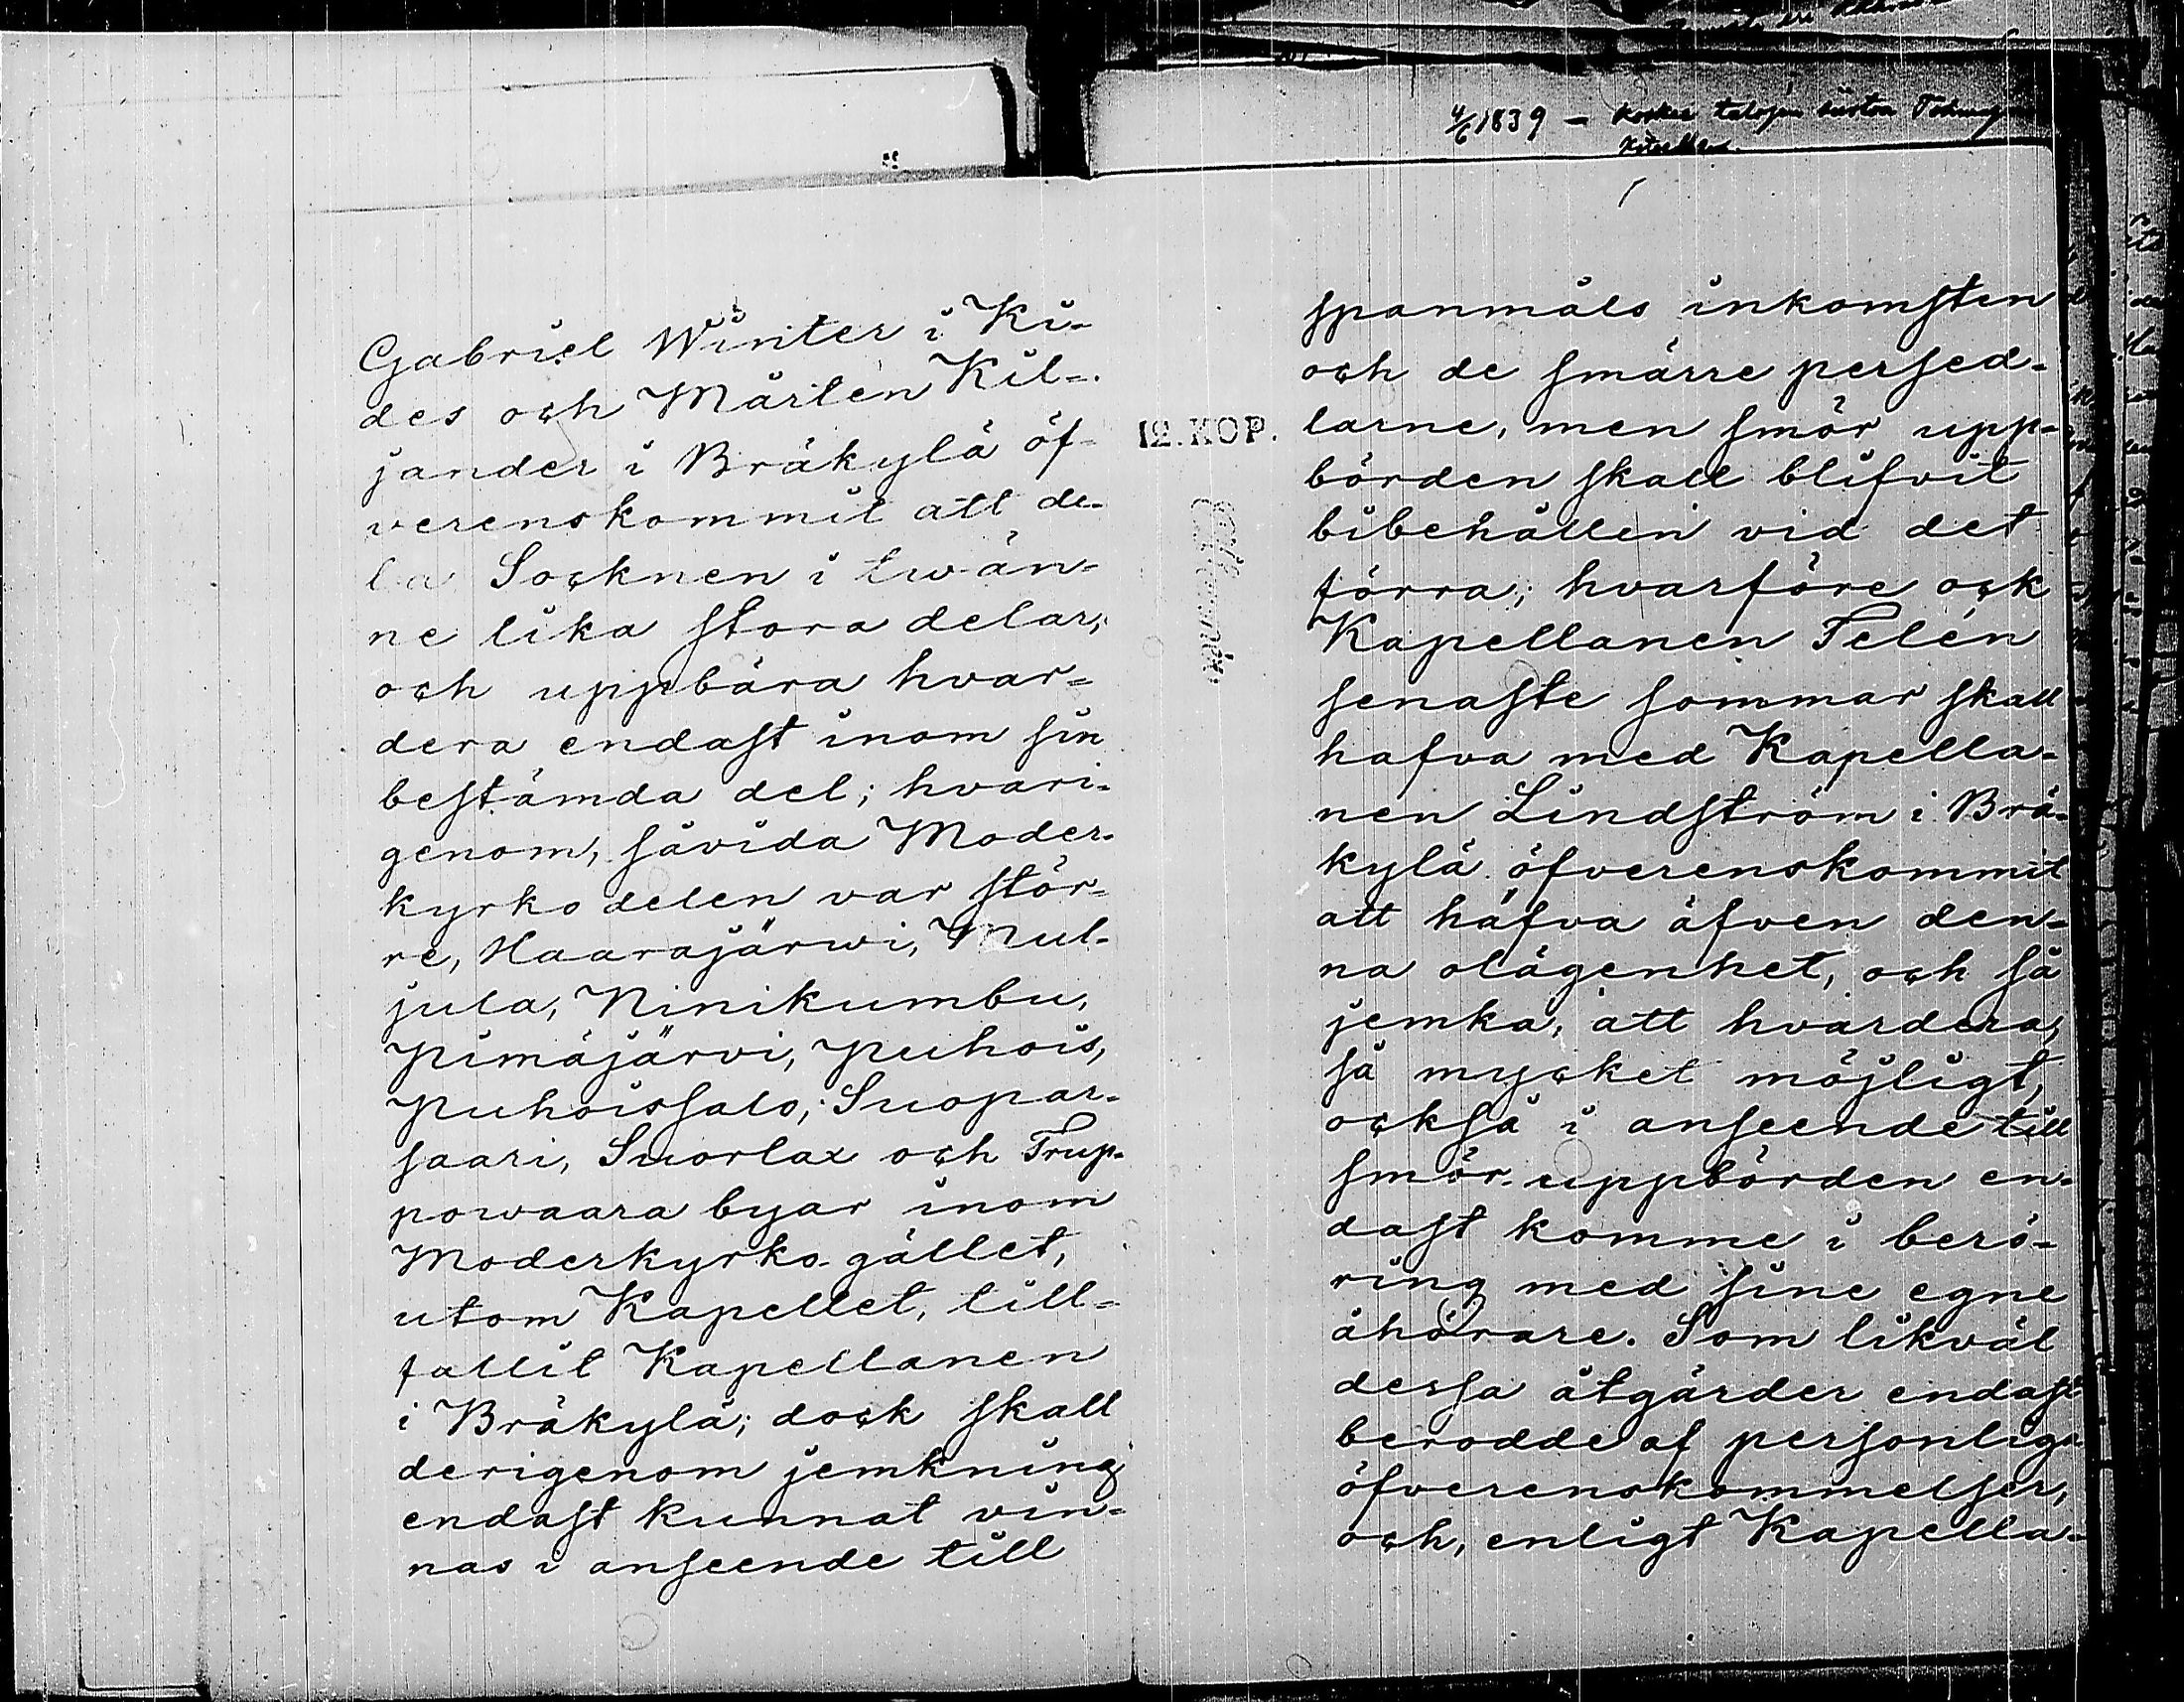 4/6 1839 – koskee talojen siirtoa
Gabriel Winter i Ki-
des och Mårten Kil-
jander i Bräkylä öf-
verenskommit att de-
la Socknen i twän-
ne lika stora delar,
och uppbära hvar-
dera endast inom sin
bestämda del; hvari-
genom, såvida Moder-
kyrko delen var stör-
re, Haarajärwi, Mul-
jula, Ninikumbu,
Pimäjärvi, Puhois,
Puhoissalo, Suopar-
saari, Suorlax och Trup-
powaara byar inom
Moderkyrko-gället,
utom Kapellet, till-
fallit Kapellanen
i Bräkylä; dock skall
derigenom jemkning
endast kunnat vin-
nas i anseende till
12. KOP.
spanmåls inkomsten
och de smärre persed-
larne, men smör upp-
börden skall blifvit
bibehållen vid det
förra; hvarföre ock
Kapellanen Telén
senaste sommar skall
hafva med Kapella-
nen Lindström i Brä-
kylä öfverenskommit
att häfva äfven den-
na olägenhet, och så
jemka, att hvardera,
så mycket möjligt,
också i anseende till
smör-uppbörden en-
dast komme i berö-
ring med sine egne
åhörare. Som likväl
dessa åtgärder endast
berodde af personliga
öfverenskommelser,
och, enligt Kapella-